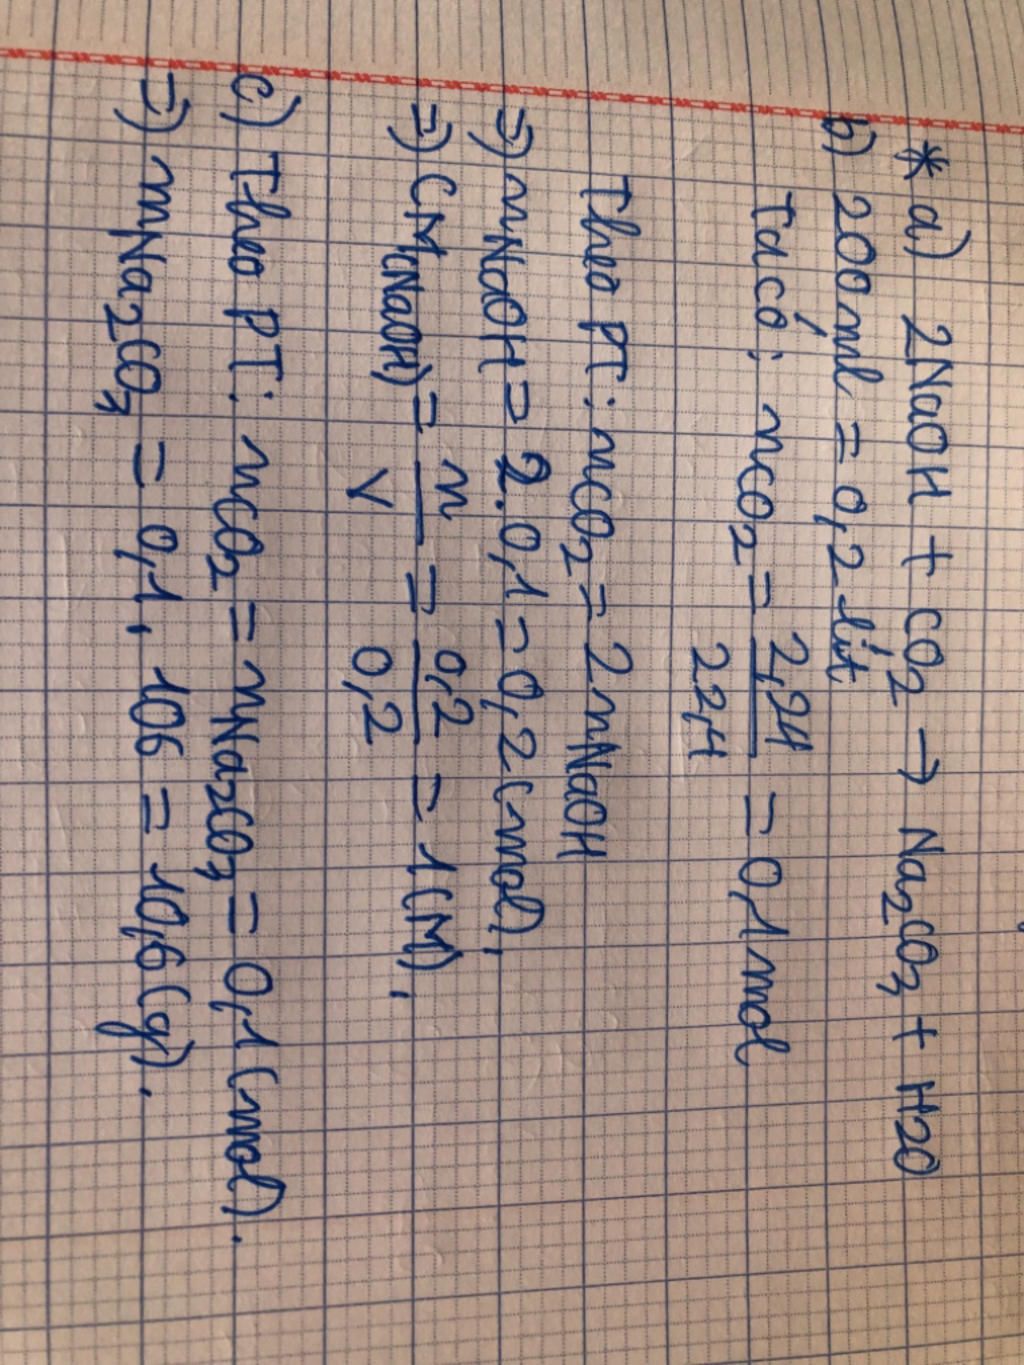 * a) 2NaOH + CO2 → Na2CO3 + H2O
b) 200ml = 0,2 lít
Ta có: nCO2 = 2,24 / 22,4 = 0,1 mol
Theo PT: nCO2 = 2nNaOH
=) nNaOH = 2.0,1 = 0,2 (mol).
=) CM(NaOH) = n / V = 0,2 / 0,2 = 1 (M).
c) Theo PT: nCO2 = nNa2CO3 = 0,1 (mol).
=) mNa2CO3 = 0,1. 106 = 10,6 (g).